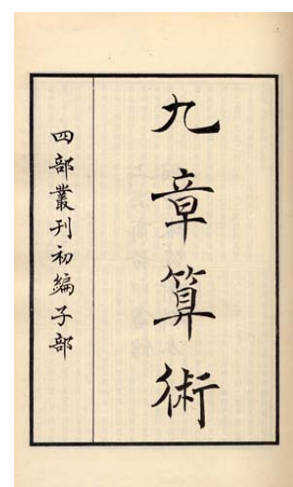 九章算術
四部叢刊初編子部